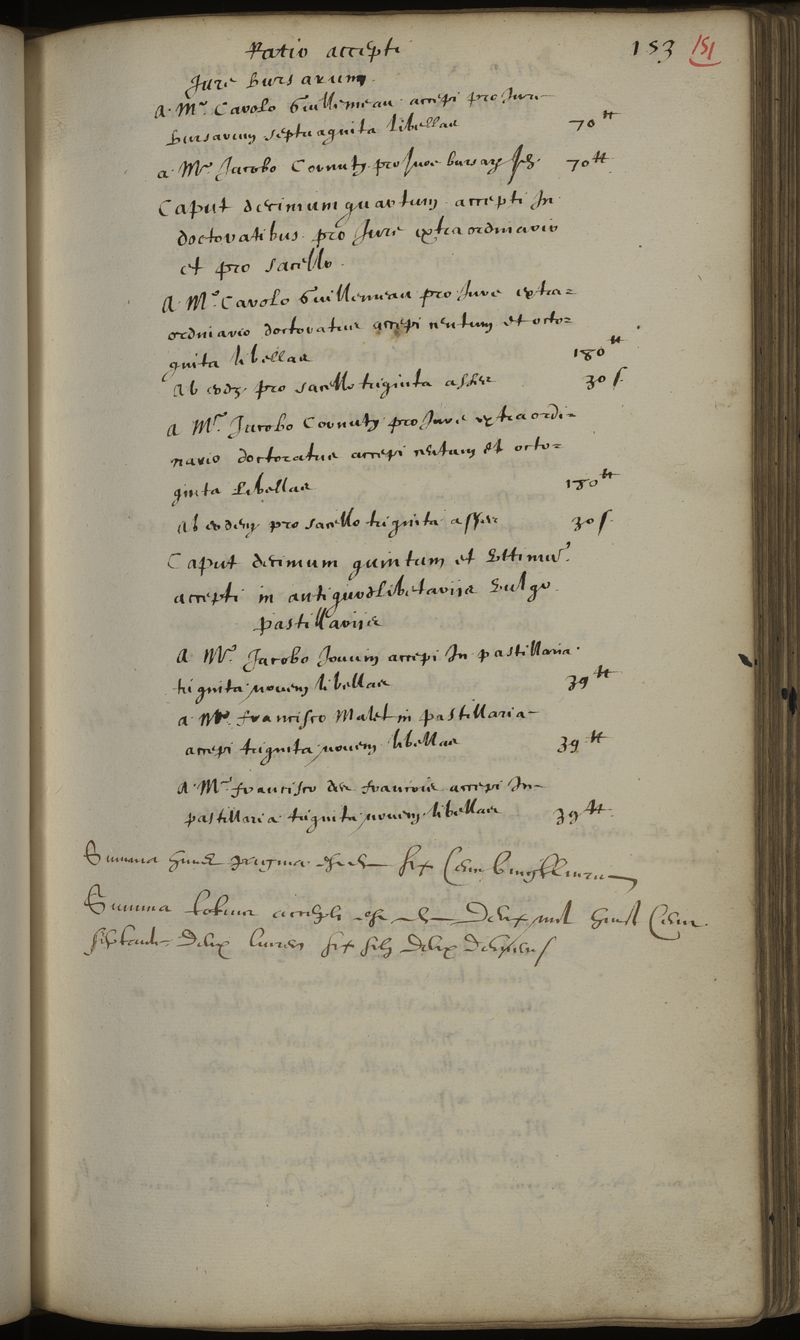 Ratio accepti 153 151
Jure bursarum.
A. Mr. Carolo Guillemeau. accepi pro Jure
bursarum septuaginta libellas 70 tt
a. Mr Jacobo Cornuty. pro Jure bursarum 70 tt
Caput decimumquartum accepti In
doctoratibus. pro Jure extraordinario
et pro sacello.
A Mr. Carolo Guillemeau pro Jure extra=
ordinario doctoratus accepi centum et octo=
ginta libellas 180 tt
Ab eodem pro sacello triginta asses 30 s.
A Mr. Jacobo Cornuty pro Jure extraordi=
nario doctoratus accepi centum et octo=
ginta libellas 180 tt
Ab eodem pro sacello triginta asses 30 s.
Caput decimum quintum et Vltimum
accepti in antiquodlibetarijs Vulgo
pastillarijs
A Mr. Jacobo Jouuin accepi In pastillaria.
triginta, nouem libellas 39 tt
a Mr. Francisco Malet in pastillaria
accepi triginta, nouem libellas 39 tt
A Mr. Francisco de Francois accepi In
pastillaria triginta, nouem libellas 39 tt
Summa six Cens vingt
Summa totius accepti Deux mil huict Cens
Deux liures six solz Deux deniers